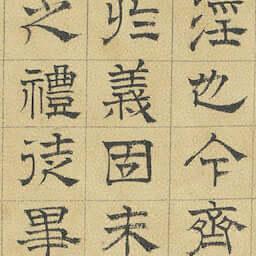 淫也今齊
於義固未
之禮徒畢